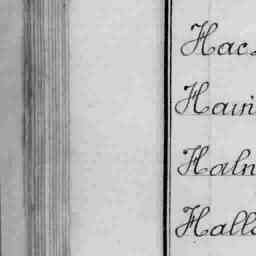 Hac
Hain
Haln
Halle